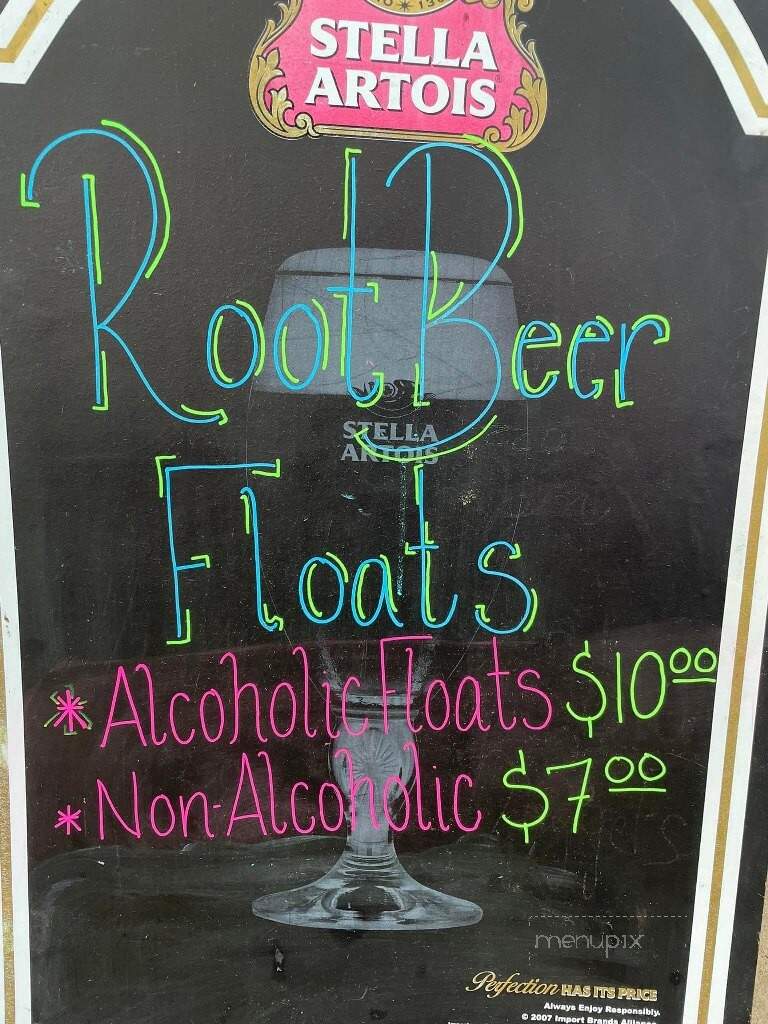 STELLA
ARTOIS
Root Beer
STELLA
ARTOIS
Floats
* Alcoholic Floats $10.00
* Non-Alcoholic $7.00
menupix
Perfection HAS ITS PRICE
Always Enjoy Responsibly.
© 2007 Import Brands